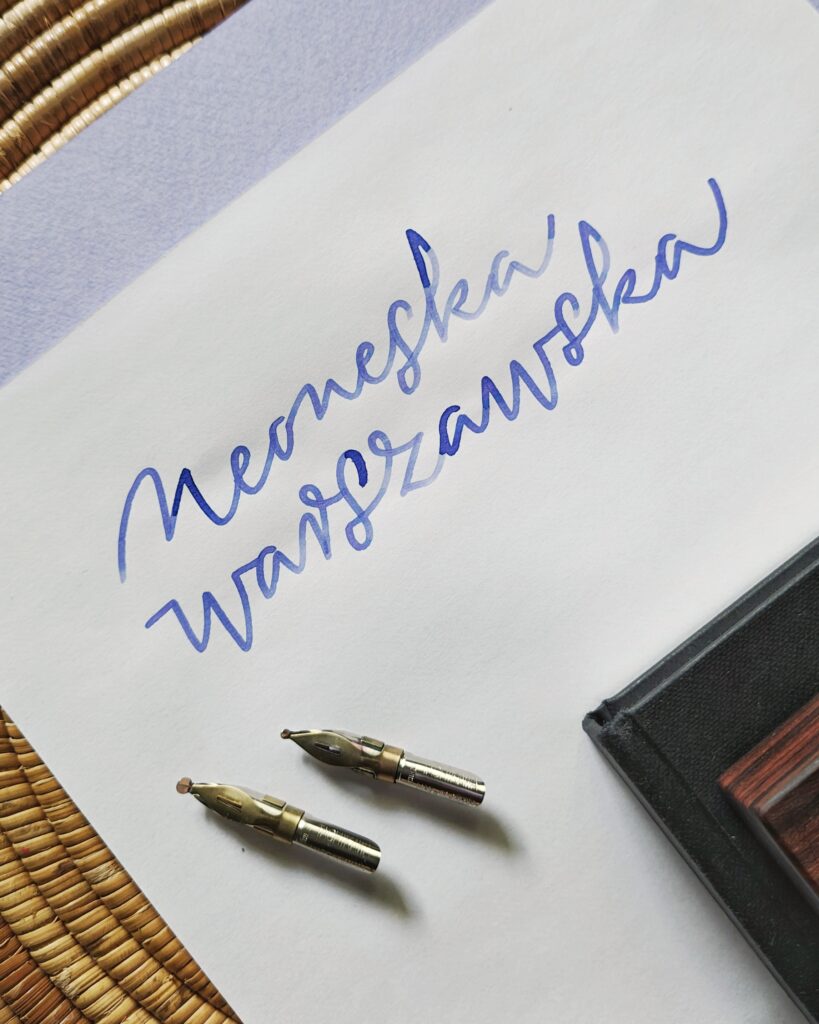 neoneska
warszawska